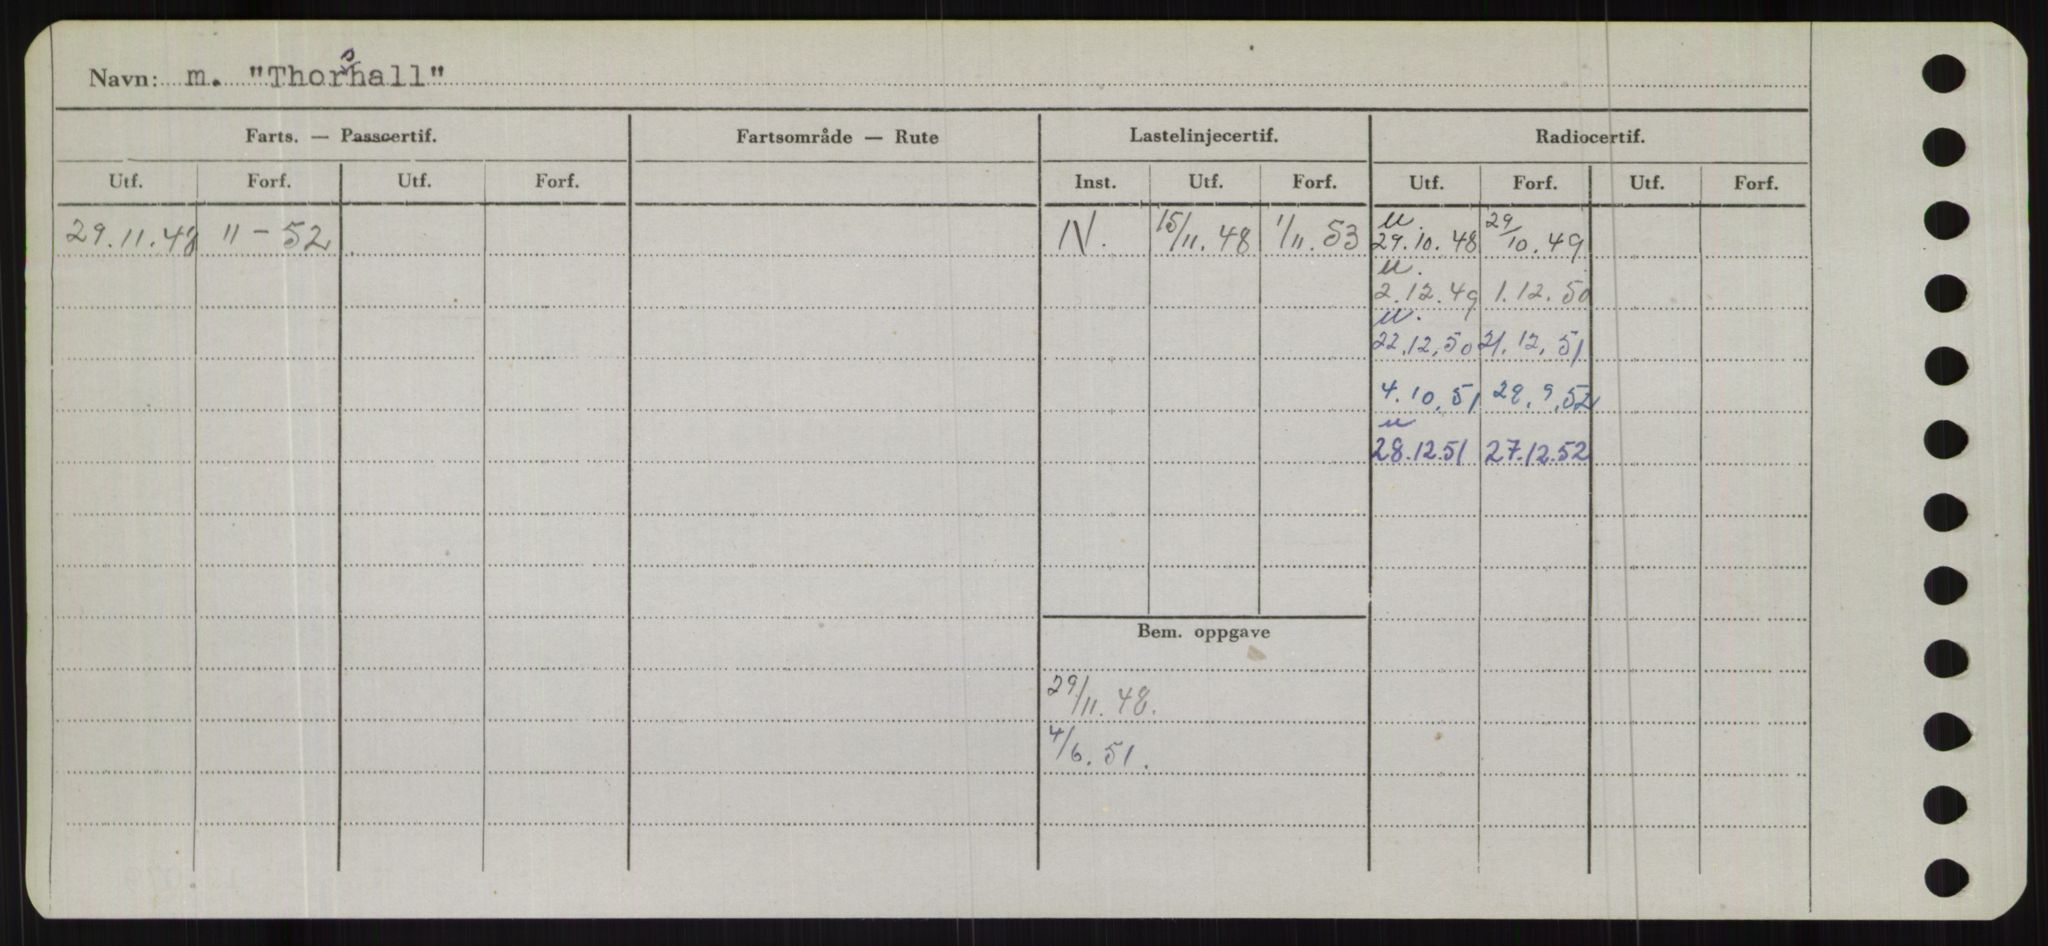 Navn: m. "Thorshall"
Farts. — Passcertif. Fartsområde — Rute Lastelinjecertif. Radiocertif.
Utf. Forf. Utf. Forf. Inst. Utf. Forf. Utf. Forf. Utf. Forf.
u.
29.11.48 11-52 IV. 15/11. 48 1/11. 53 29.10.48 29/10.49
u.
2.12.49 1.12.50
u.
22.12.50 21.12.51
4.10.51 28.9.52
u
28.12.51 27.12.52
Bem. oppgave
29/11. 48.
4/6. 51.